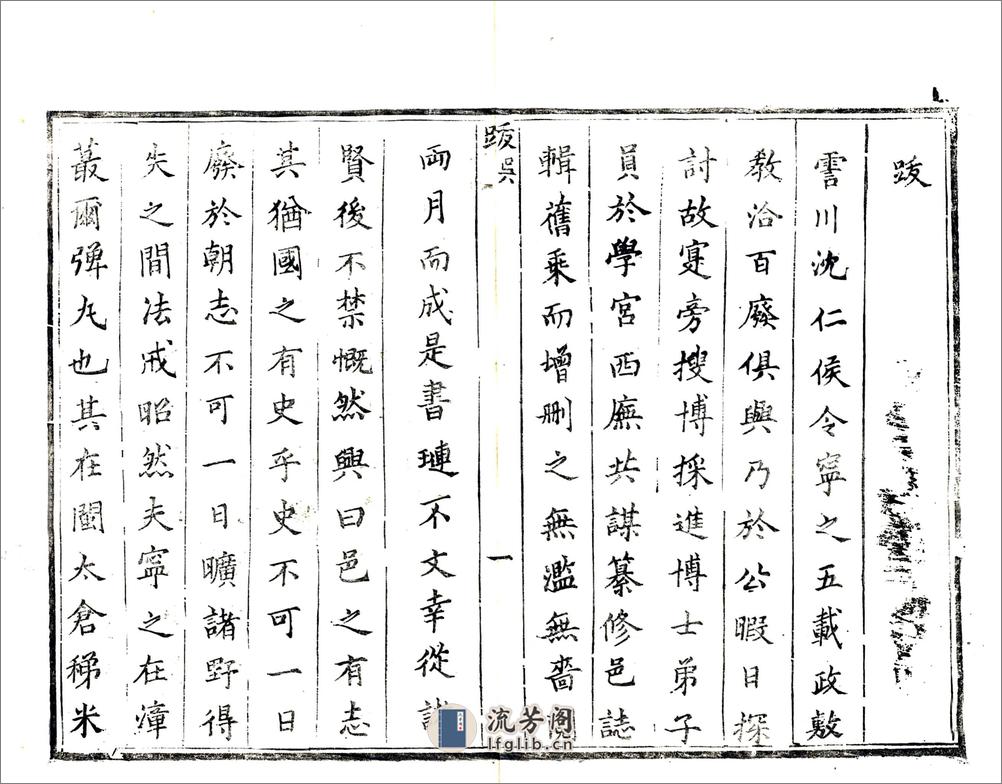 跋
霅川沈仁侯令寧之五載政敷
教洽百廢俱興乃於公暇日探
討故寔旁搜博採進博士弟子
員於學宮西廡共謀纂修邑誌
輯舊乗而增刪之無濫無嗇
跋吳
一
兩月而成是書璉不文幸從
賢後不禁慨然興曰邑之有志
其猶國之有史乎史不可一日
廢於朝志不可一日曠諸野得
失之間法戒昭然夫寧之在漳
蕞爾彈丸也其在閩太倉稊米
流芳阁
lfglib.cn